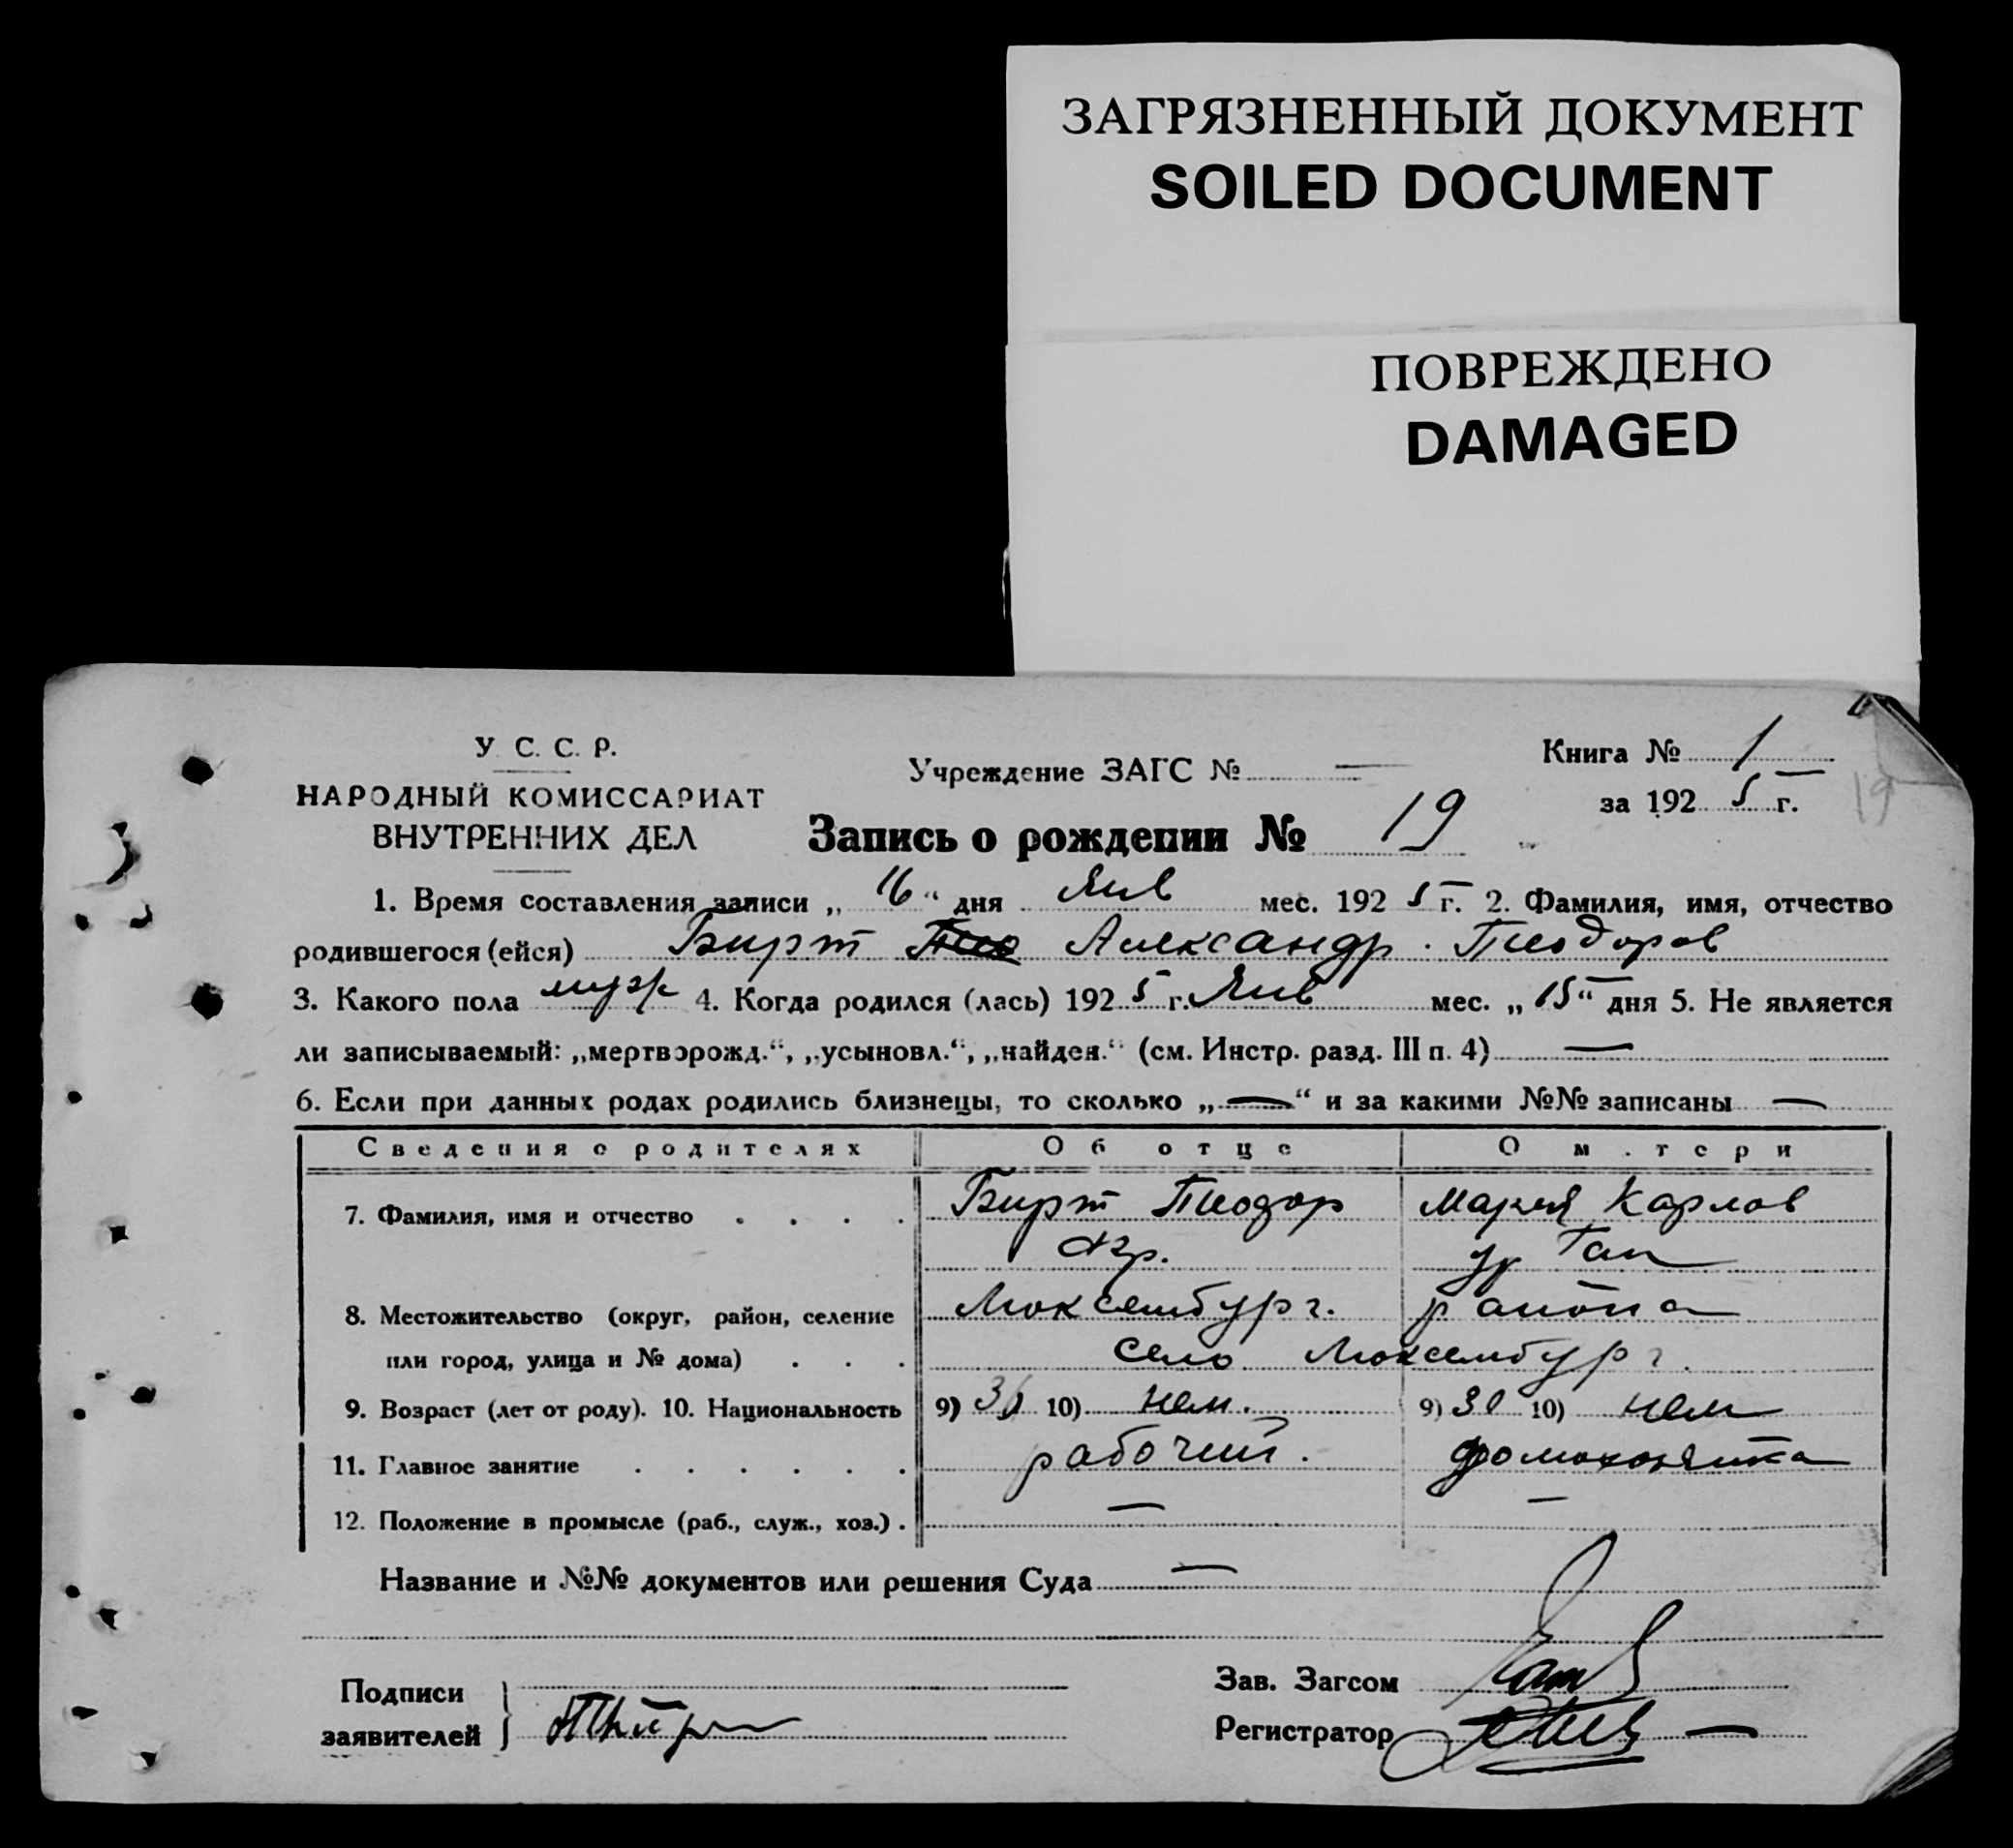 ЗАГРЯЗНЕННЫЙ ДОКУМЕНТ
SOILED DOCUMENT
ПОВРЕЖДЕНО
DAMAGED
У. С. С. Р.
НАРОДНЫЙ КОМИССАРИАТ
ВНУТРЕННИХ ДЕЛ
Учреждение ЗАГС № —
Книга № 1
за 1925 г.
19
Запись о рождении № 19
1. Время составления записи „ 16 “ дня Янв мес. 1925 г. 2. Фамилия, имя, отчество
родившегося (ейся) Бирт Александр Теодоров
3. Какого пола муж 4. Когда родился (лась) 1925 г. Янв мес. „ 15 “ дня 5. Не является
ли записываемый: „мертворожд.“, „усыновл.“, „найден.“ (см. Инстр. разд. III п. 4) —
6. Если при данных родах родились близнецы, то сколько „ — “ и за какими №№ записаны —
Сведения о родителях Об отце О м.тери
7. Фамилия, имя и отчество . . . . Бирт Теодор Мария Карлов
ур Ган
8. Местожительство (округ, район, селение Люксембург. района
или город, улица и № дома) . . . село Люксембург.
9. Возраст (лет от роду). 10. Национальность 9) 10) нем. 9) 30 10) нем
11. Главное занятие . . . . . . рабочий. домохозяйка
12. Положение в промысле (раб., служ., хоз.) . — —
Название и №№ документов или решения Суда —
Подписи
заявителей
Зав. Загсом
Регистратор